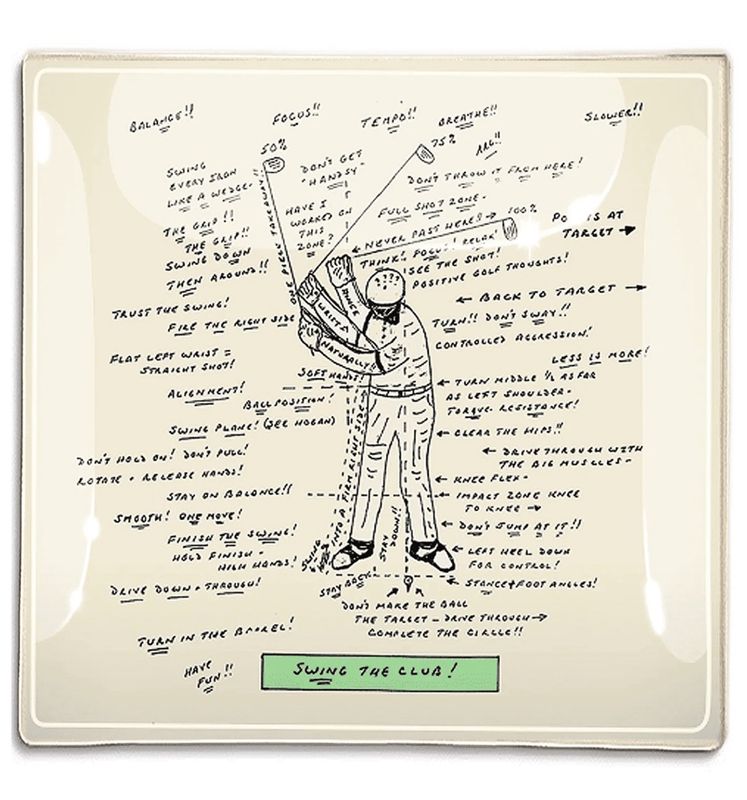 BALANCE!!
FOCUS!!
TEMPO!!
BREATHE!!
SLOWER!!
ARG!!
50%
75%
SWING
EVERY IRON
LIKE A WEDGE-
DON'T GET
"HANDSY"
DON'T THROW IT FROM HERE!
THE GRIP!!
THE GRIP!!
HAVE I
WORKED ON
THIS
ZONE?
FULL SHOT ZONE-
← NEVER PAST HERE! → 100%
POINTS AT
TARGET →
SWING DOWN
THEN AROUND!!
ONE PIECE TAKEAWAY!!
THINK! FOCUS! RELAX!
SEE THE SHOT!
POSITIVE GOLF THOUGHTS!
TRUST THE SWING!
FIRE THE RIGHT SIDE
HINGE
WRISTS
NATURALLY!!
← BACK TO TARGET →
TURN!! DON'T SWAY!!
CONTROLLED AGGRESSION!
FLAT LEFT WRIST =
STRAIGHT SHOT!
LESS IS MORE!
SOFT HANDS!
ALIGNMENT!
BALL POSITION!
← TURN MIDDLE ½ AS FAR
AS LEFT SHOULDER-
TORQUE-RESISTANCE!
SWING PLANE! (SEE HOGAN)
← CLEAR THE HIPS!!
DON'T HOLD ON! DON'T PULL!
ROTATE + RELEASE HANDS!
← DRIVE THROUGH WITH
THE BIG MUSCLES-
← KNEE FLEX-
STAY ON BALANCE!!
← IMPACT ZONE KNEE
TO KNEE →
SMOOTH! ONE MOVE!
← DON'T JUMP AT IT!!
FINISH THE SWING!
HOLD FINISH-
HIGH HANDS!
SWING
INTO A FIRM RIGHT SIDE
STAY
DOWN!!
← LEFT HEEL DOWN
FOR CONTROL!
DRIVE DOWN + THROUGH!
STAY BACK
← STANCE + FOOT ANGLES!
DON'T MAKE THE BALL
THE TARGET - DRIVE THROUGH →
COMPLETE THE CIRCLE!!
TURN IN THE BARREL!
HAVE
FUN!!
SWING THE CLUB!